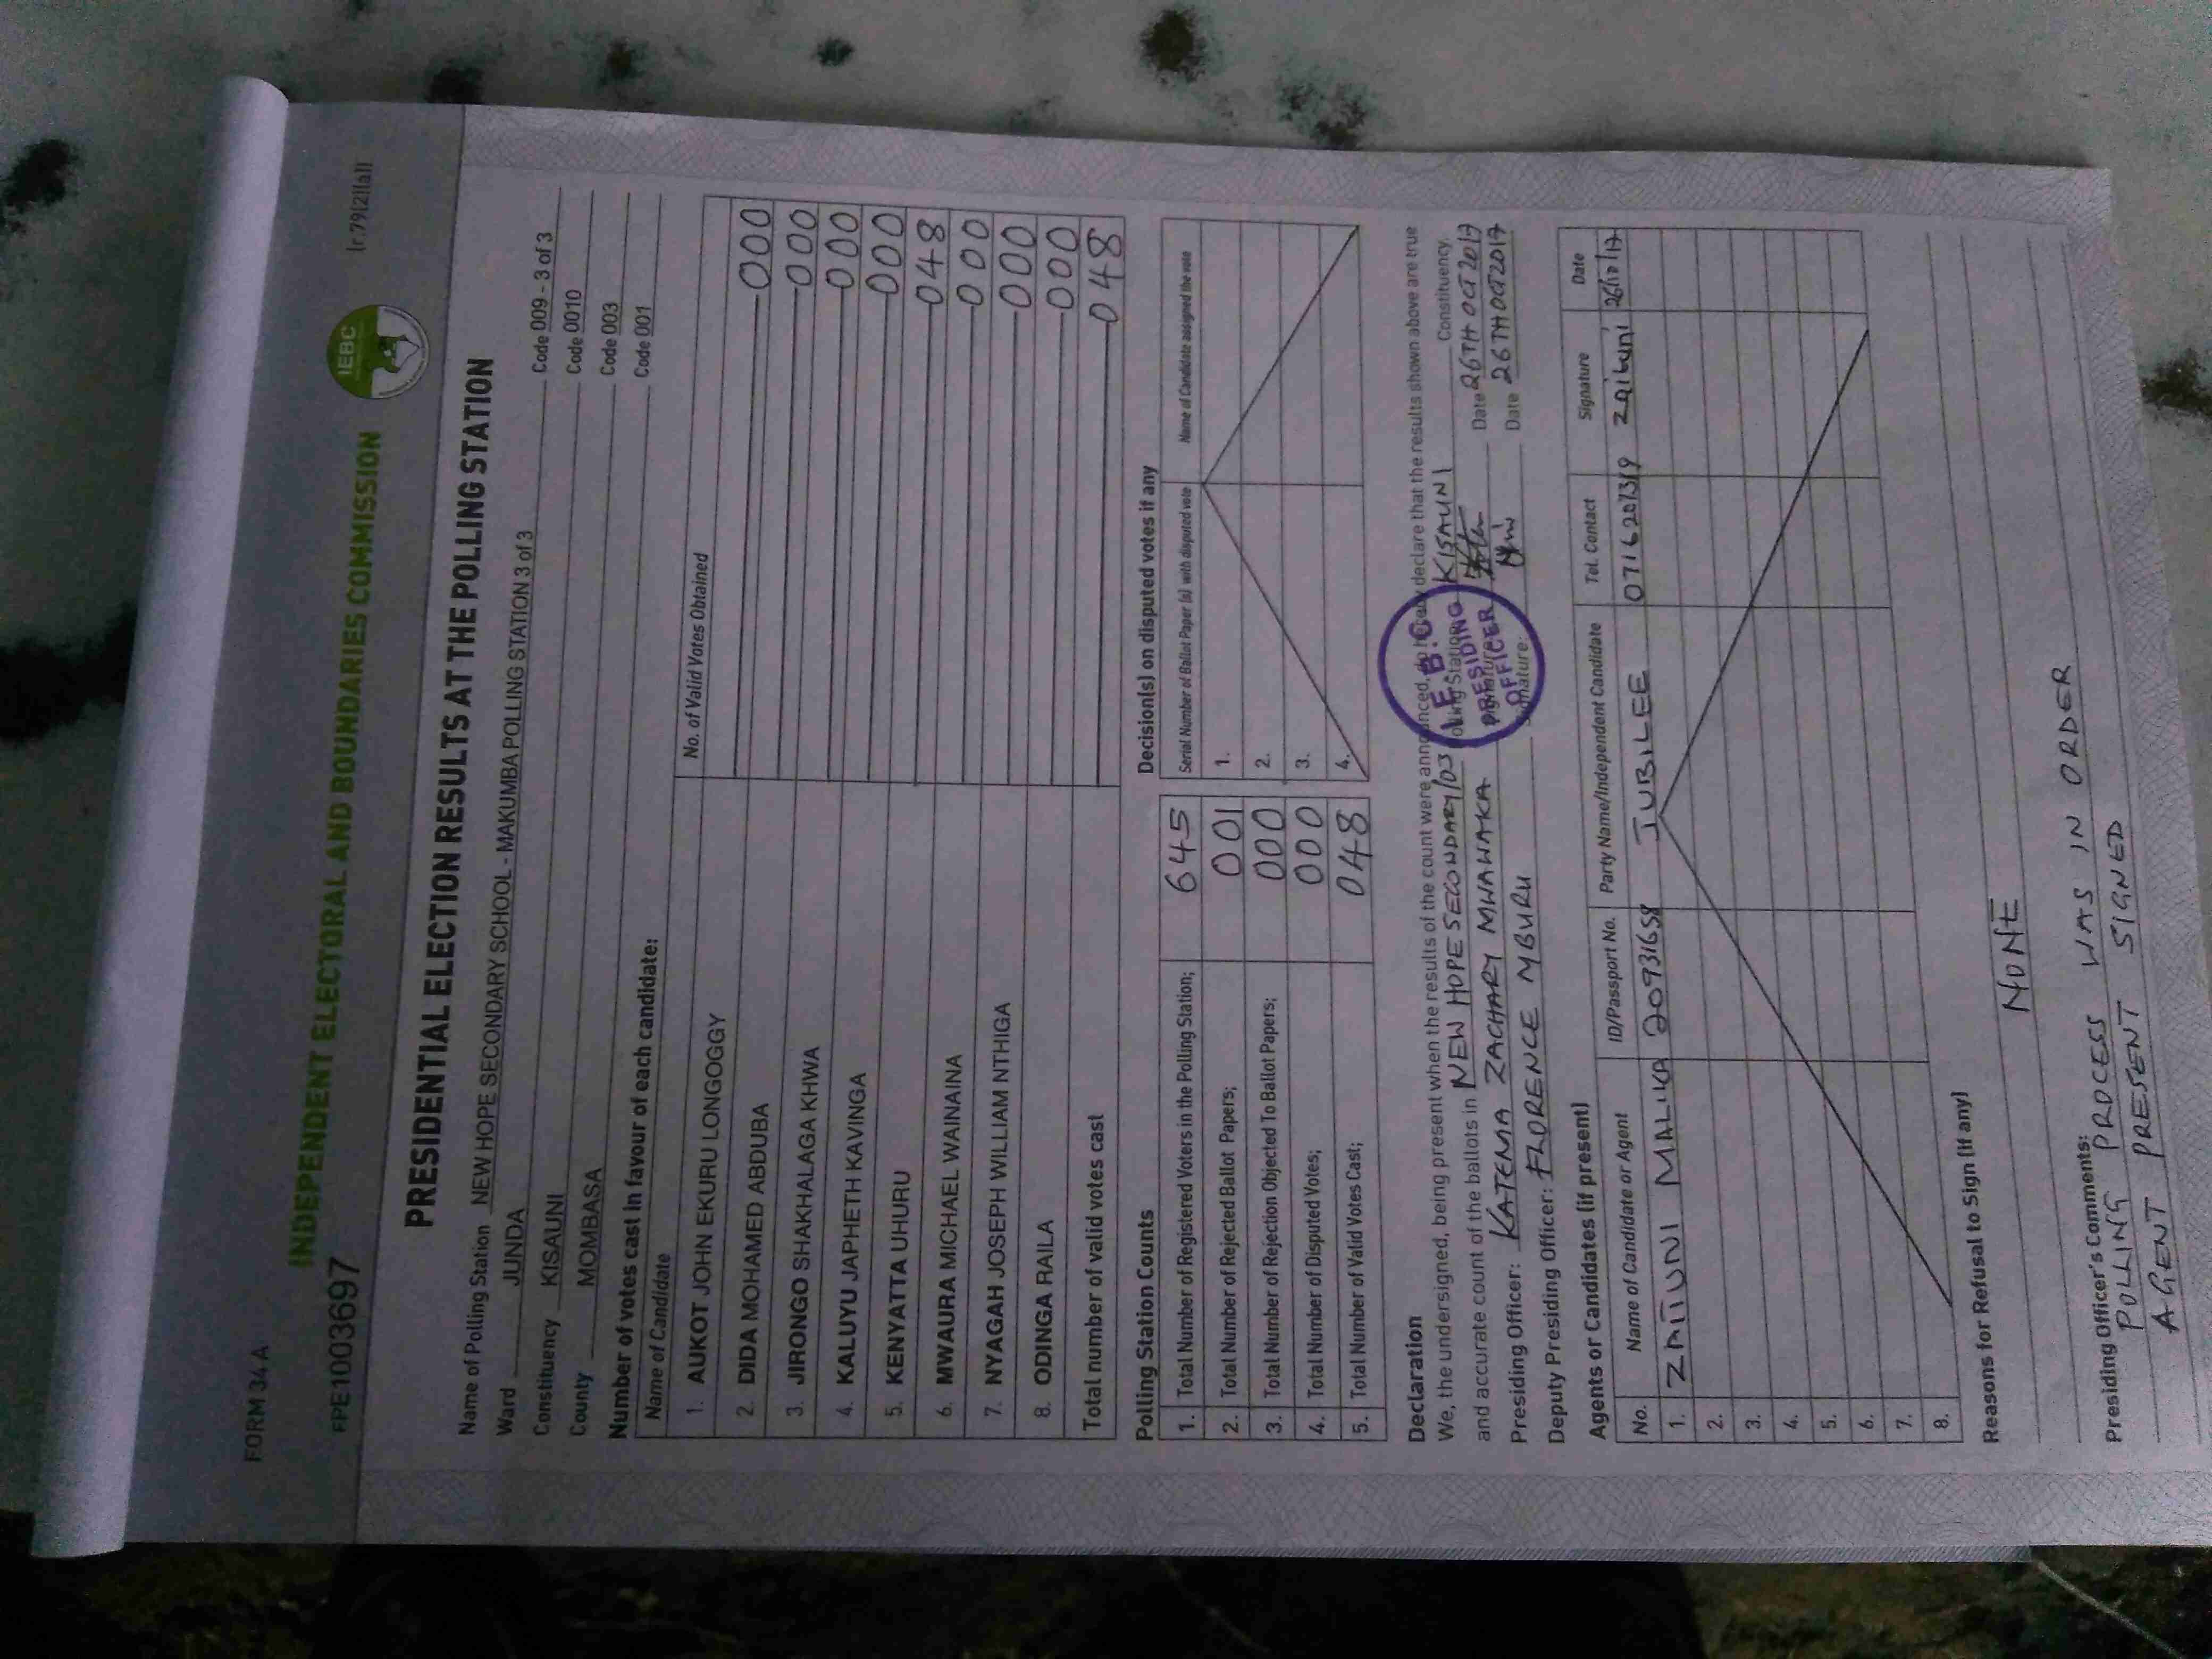 FORM 34 A
[r.79(2)(a)]
INDEPENDENT ELECTORAL AND BOUNDARIES COMMISSION
IEBC
PRE1003697
PRESIDENTIAL ELECTION RESULTS AT THE POLLING STATION
Name of Polling Station NEW HOPE SECONDARY SCHOOL - MAKUMBA POLLING STATION 3 of 3 Code 009 - 3 of 3
Ward JUNDA Code 0010
Constituency KISAUNI Code 003
County MOMBASA Code 001
Number of votes cast in favour of each candidate:
Name of Candidate No. of Valid Votes Obtained
1. AUKOT JOHN EKURU LONGOGGY 000
2. DIDA MOHAMED ABDUBA 000
3. JIRONGO SHAKHALAGA KHWA 000
4. KALUYU JAPHETH KAVINGA 000
5. KENYATTA UHURU 048
6. MWAURA MICHAEL WAINAINA 000
7. NYAGAH JOSEPH WILLIAM NTHIGA 000
8. ODINGA RAILA 000
Total number of valid votes cast 048
Polling Station Counts
1. Total Number of Registered Voters in the Polling Station; 645
2. Total Number of Rejected Ballot Papers; 001
3. Total Number of Rejection Objected To Ballot Papers; 000
4. Total Number of Disputed Votes; 000
5. Total Number of Valid Votes Cast; 048
Decision(s) on disputed votes if any
Serial Number of Ballot Paper (s) with disputed vote Name of Candidate assigned the vote
1.
2.
3.
4.
Declaration
We, the undersigned, being present when the results of the count were announced, do hereby declare that the results shown above are true
and accurate count of the ballots in NEW HOPE SECONDARY/03 Polling Station KISAUNI Constituency.
Presiding Officer: KATEMA ZACHARY MWAWAKA Signature: Date 26TH OCT 2017
Deputy Presiding Officer: FLORENCE MBURU Signature: Date 26TH OCT 2017
I.E.B.C
PRESIDING
OFFICER
Agents or Candidates (if present)
No. Name of Candidate or Agent ID/Passport No. Party Name/Independent Candidate Tel. Contact Signature Date
1. ZAITUNI MALIKA 20931658 JUBILEE 0716207319 Zaituni 26/10/17
2.
3.
4.
5.
6.
7.
8.
Reasons for Refusal to Sign (if any)
NONE
Presiding Officer's Comments:
POLLING PROCESS WAS IN ORDER
AGENT PRESENT SIGNED